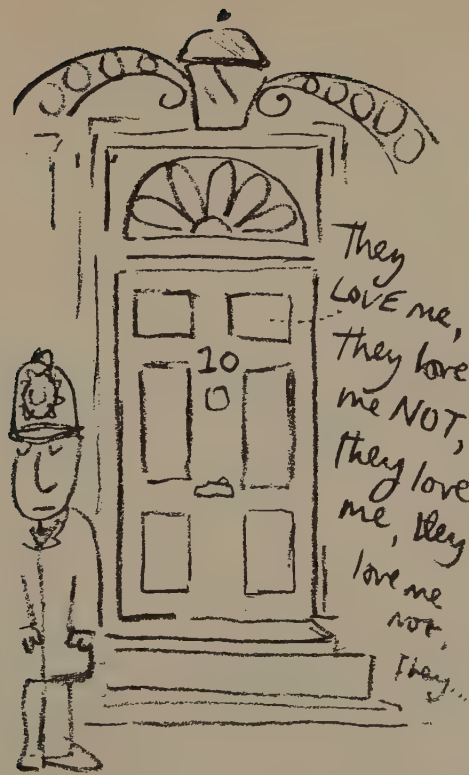 10
They
LOVE me,
they love
me NOT,
they love
me, they
love me
not,
They...